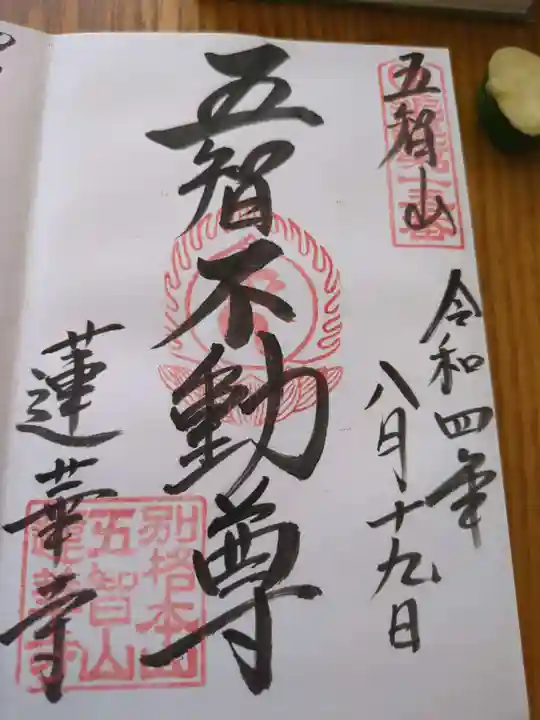 五智山
令和四年
八月十九日
五智不動尊
蓮華寺
別格本山
五智山
蓮華寺